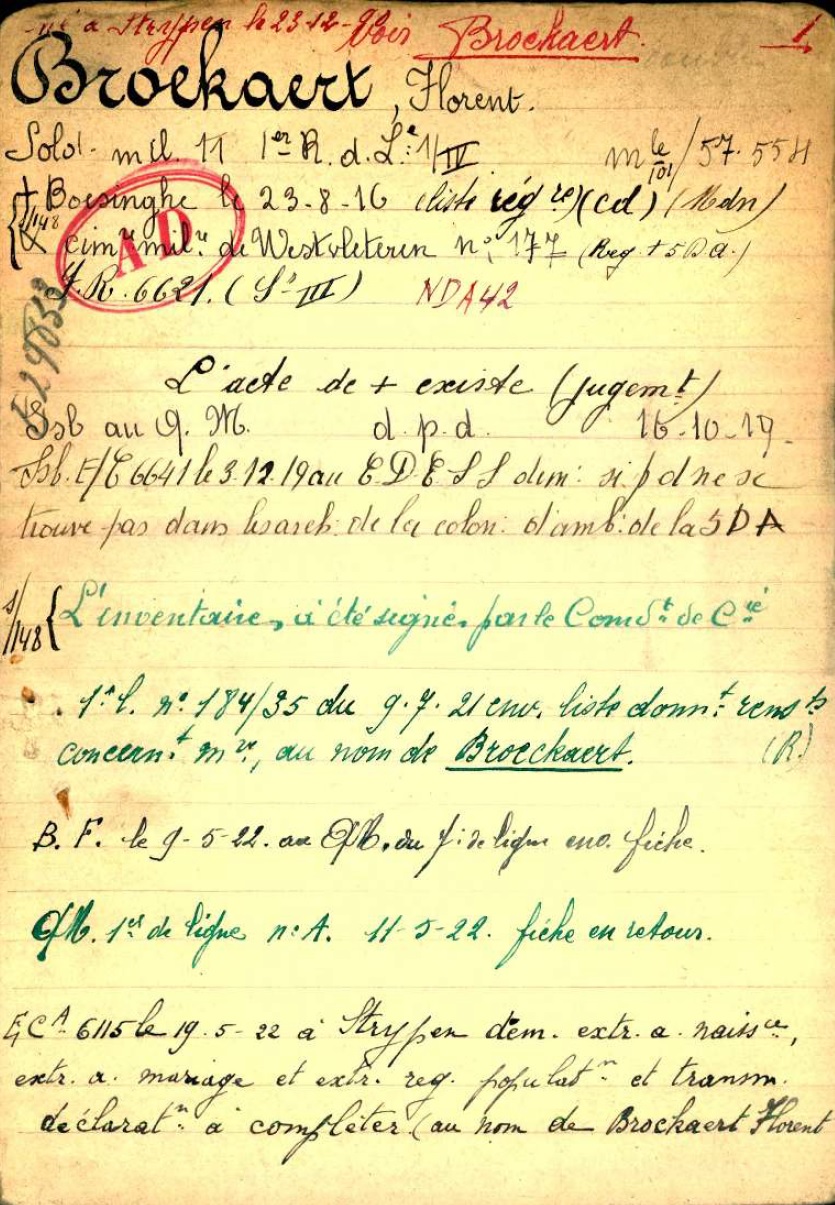 né à Strypen le 23-12-
Voir Brockaert. 1
Broekaert, Florent.
Sold. mil. 11 1er R. d. Le: 1/IV mle/101 / 57.554
+ Boesinghe le 23-8-16 (liste rég re) (cd) (Mdn)
1/148 & cimre milre de Westvleteren no 177 (Reg. + 5 D.A.)
AD
J.R. 6621. (Sn III) NDA42
L'acte de + existe (jugemt)
Ssb au Q. M. d. p. d. 16-10-19.
Ssb. E/E 6641 le 3.12.19 au EDESS dem: si p d ne se
trouve pas dans les arch: de la colon: d'amb: de la 5 DA
s/148 { L'inventaire, a été signé par le Comdt de Cie
1e l. no 184/35 du 9.7.21 env. liste donnt rensts
concernt mre, au nom de Broeckaert. (R.)
B. F. le 9-5-22. au QM. du 1: de ligne env. fiche.
QM. 1er de ligne n: A. 11-5-22. fiche en retour.
ECA 6115 le 19.5-22 à Strypen dem. extr. a. naissce,
extr. a. mariage et extr. reg. populatn et transm.
déclaratn à compléter (au nom de Brockaert Florent